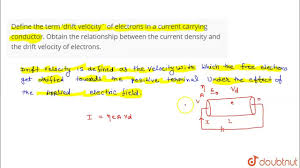 Define the term 'drift velocity' of electrons in a current carrying
conductor. Obtain the relationship between the current density and
the drift velocity of electrons.
Drift velocity is defined as the velocity with which the free electrons
get drifted towards the positive terminal under the effect of
the applied electric field.
I = neA Vd
E Vd
A
V
I
L
doubtnut